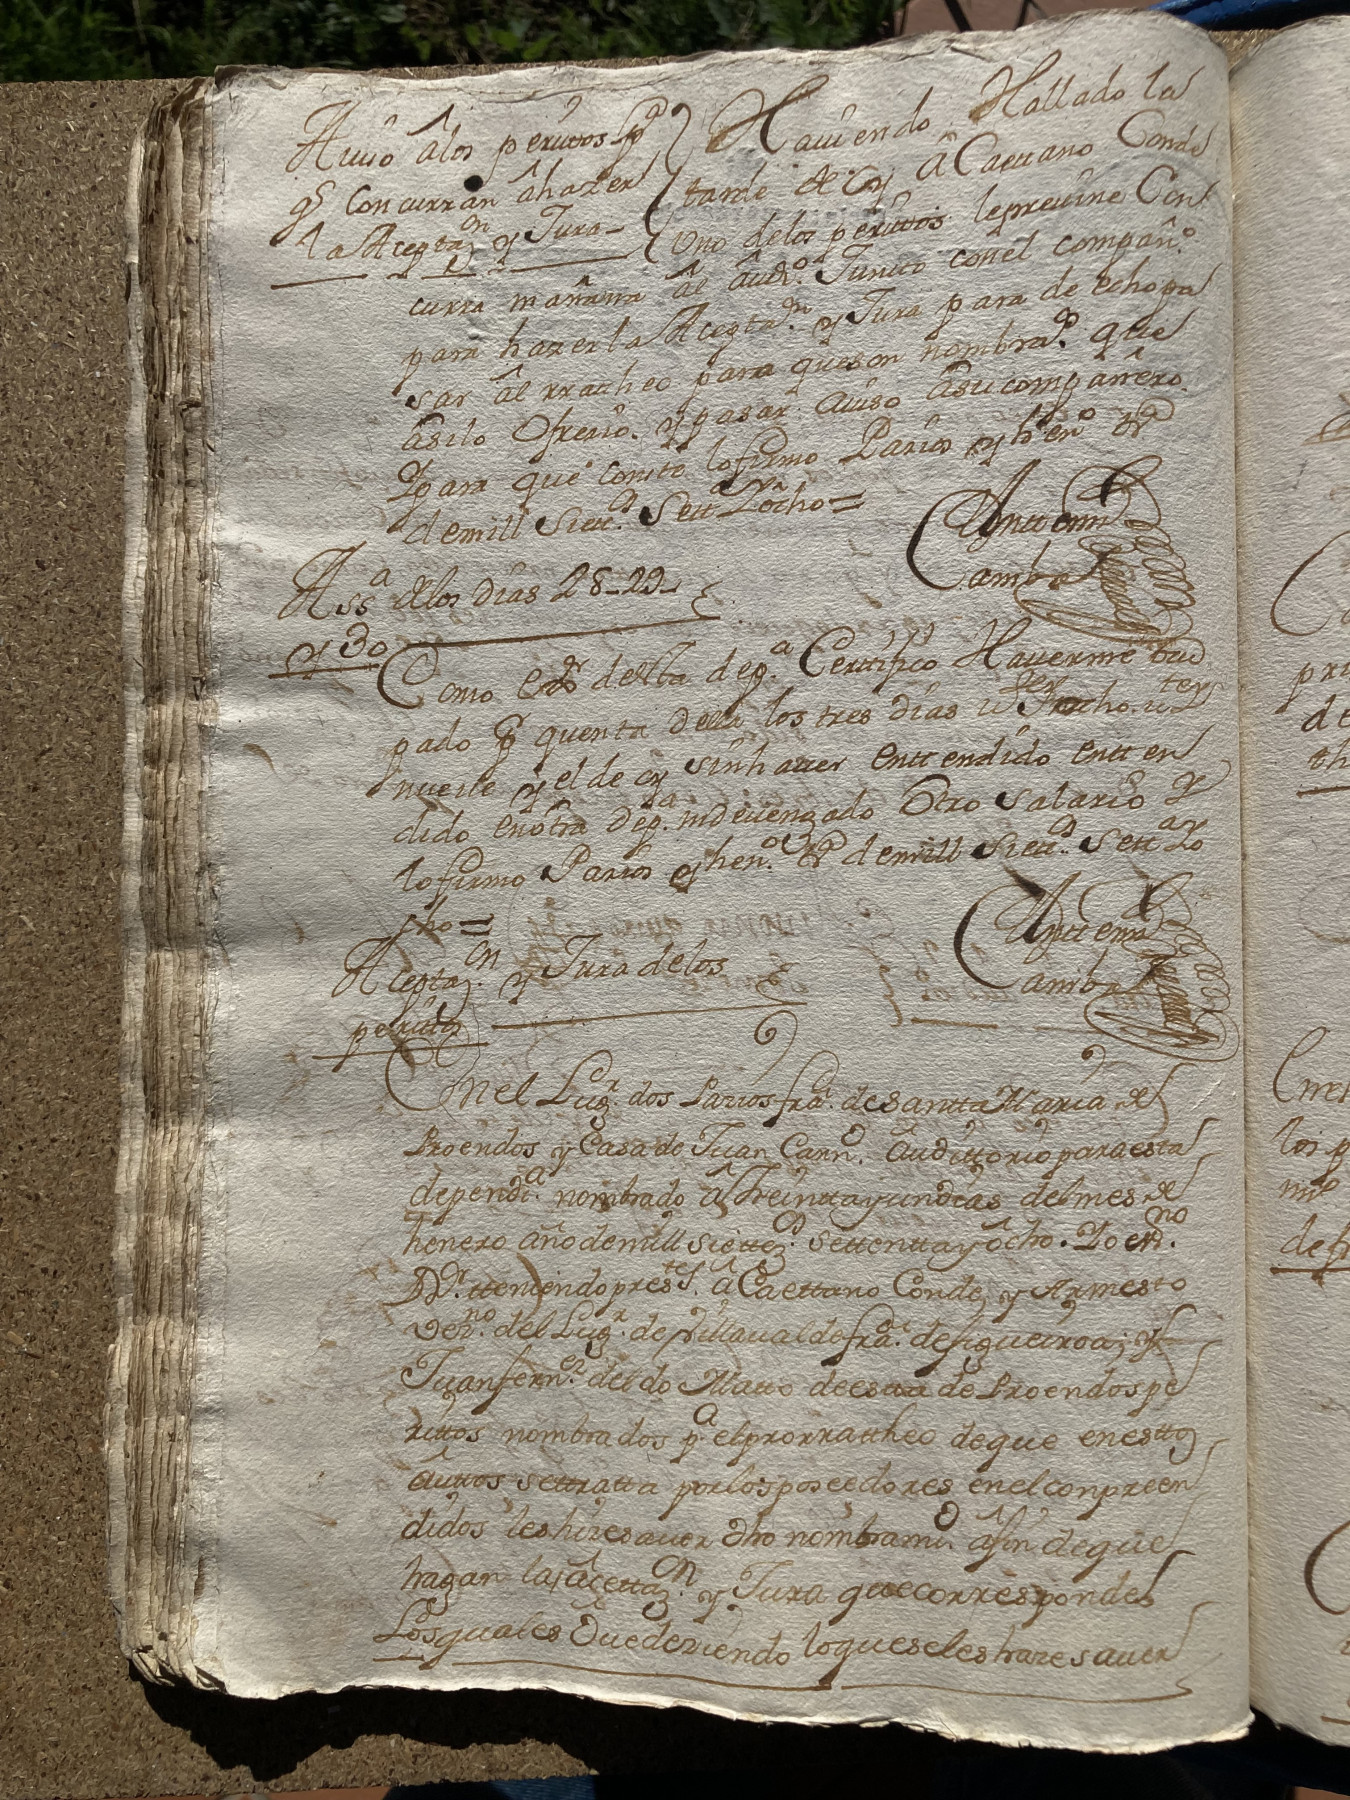 Aviso â los peritos pª
qº Concurran âhazer
la Aceptazn y Jura
Haviendo Hallado la
tarde de oy â Caettano Conde
Uno delos peritos lepreuine Con
curra mañana âl âudº Junto conel compañº
para hazerla Aceptazn y Jura para de echo pa
sar âl rratheo para queson nombrados que
âsilo Ofrecio. y pasar auiso âsucompañero
Ypara que conste lofirmo Parios y henº
demill Settos Settª Yocho =
Anttonio
Camba
Assª delos dias 28-29-
y 30
Como Essno deesta depª Certtifico Hauerme ocu
pado pr quenta della los tres dias
nueue y el de oy sinhauer entt endido entt en
dido enôtra depª nideuengado Otro salario Y
lofirmo Parios y henº demill Settos Settª Yo
cho =
Anttonio
Camba
Aceptazn y Jura delos
perittos
Enel Lugr dos Parios frªˢ desantta Maria de
Proendos y Casa de Juan Carnº âudittorio paraesta
dependª nombrado â Treinttayundias delmes de
henero año demill siettezos settenttayôcho. Yo essno
Dr tteniendo prestes â Caettano Conde y Armesto
vezno del Lugr de Villaualdefrªˢ defigueiroa; y
Juanfernez deldo Matto deesta de Proendos pe
rittos nombrados pª elprorrattheo deque enestto
âuttos settratta porlosposeedores enelconpreen
didos leshizesauer dho nombramto âfin deque
hagan la âcettazn y Jura quecorresponde
Losquales Ouedeziendo loqueseleshazesauer